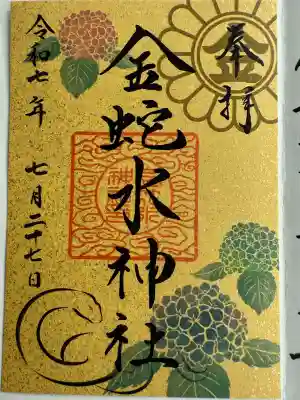 奉拝
金蛇水神社
令和七年 七月二十七日